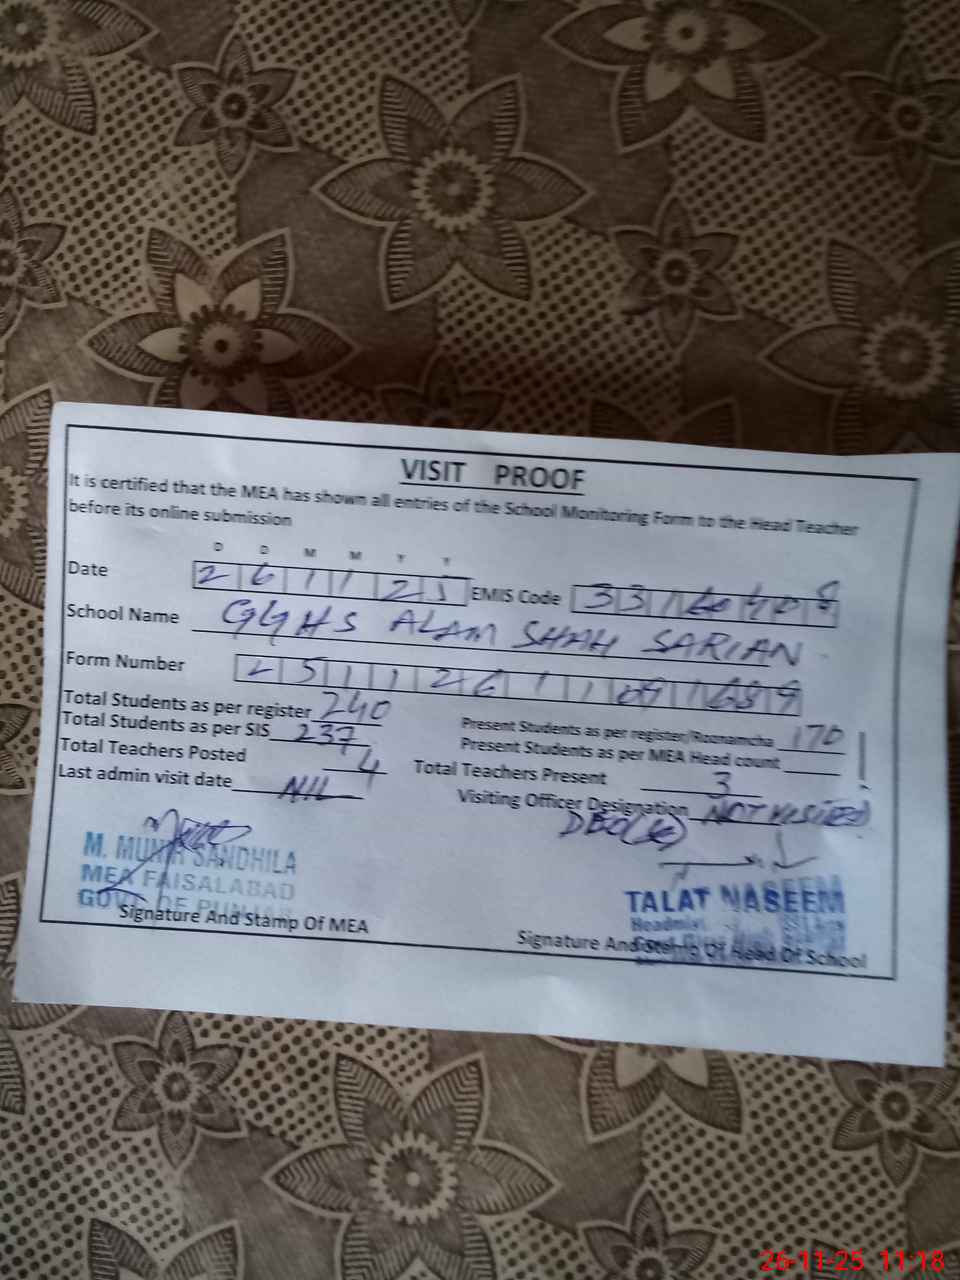 VISIT PROOF
It is certified that the MEA has shown all entries of the School Monitoring Form to the Head Teacher
before its online submission
D D M M Y Y
Date 2 6 1 1 2 5 EMIS Code
School Name GGHS ALAM SHAH SARIAN
Form Number
Total Students as per register 240
Total Students as per SIS 237
Present Students as per register/Roznamcha 170
Present Students as per MEA Head count
Total Teachers Posted 4
Total Teachers Present 3
Last admin visit date NIL
Visiting Officer Designation NOT VISITED
M. MUNIR SANDHILA
MEA FAISALABAD
GOVT. OF PUNJAB
Signature And Stamp Of MEA
TALAT NASEEM
Signature And Stamp Of Head Of School
26-11-25 11:18